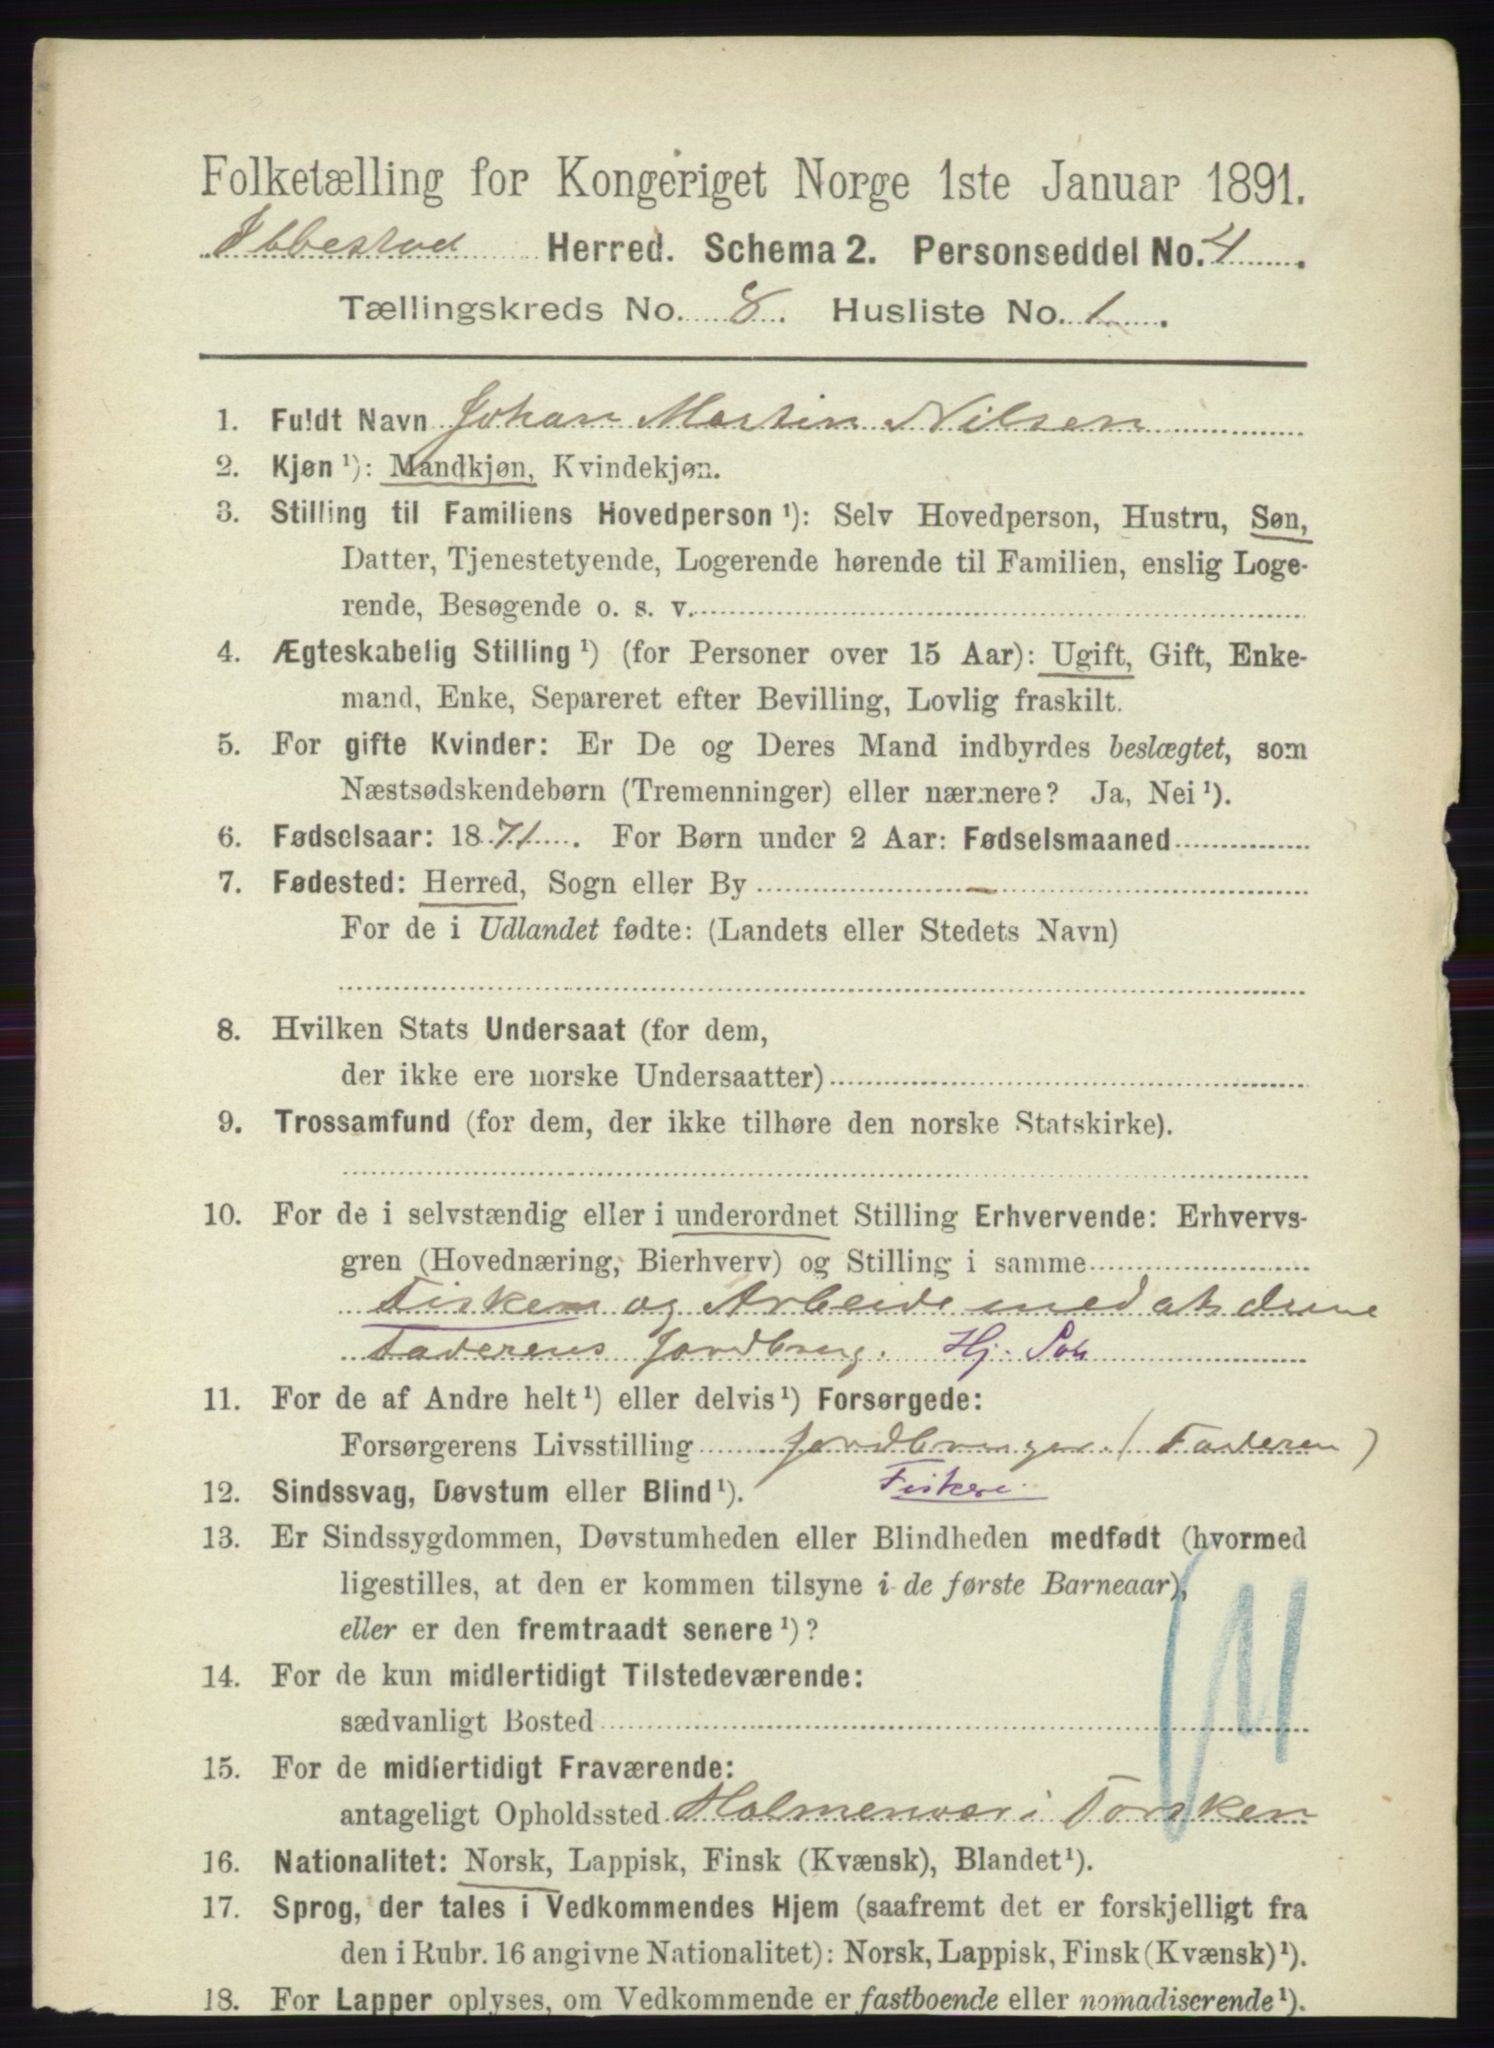 Folketælling for Kongeriget Norge 1ste Januar 1891.
Ibbestad Herred. Schema 2. Personseddel No. 4.
Tællingskreds No. 8. Husliste No. 1.
1. Fuldt Navn Johan Martin Nilsen
2. Kjøn ¹): Mandkjøn, Kvindekjøn.
3. Stilling til Familiens Hovedperson ¹): Selv Hovedperson, Hustru, Søn,
Datter, Tjenestetyende, Logerende hørende til Familien, enslig Loge-
rende, Besøgende o. s. v.
4. Ægteskabelig Stilling ¹) (for Personer over 15 Aar): Ugift, Gift, Enke-
mand, Enke, Separeret efter Bevilling, Lovlig fraskilt.
5. For gifte Kvinder: Er De og Deres Mand indbyrdes beslægtet, som
Næstsødskendebørn (Tremenninger) eller nærmere? Ja, Nei ¹).
6. Fødselsaar: 1871. For Børn under 2 Aar: Fødselsmaaned
7. Fødested: Herred, Sogn eller By –
For de i Udlandet fødte: (Landets eller Stedets Navn)
8. Hvilken Stats Undersaat (for dem,
der ikke ere norske Undersaatter)
9. Trossamfund (for dem, der ikke tilhøre den norske Statskirke).
10. For de i selvstændig eller i underordnet Stilling Erhvervende: Erhvervs-
gren (Hovednæring, Bierhverv) og Stilling i samme
Fisker og Arbeide med at drive
Faderens Jordbrug. Hj. Søn
11. For de af Andre helt ¹) eller delvis ¹) Forsørgede:
Forsørgerens Livsstilling Jordbruger (Faderen)
12. Sindssvag, Døvstum eller Blind ¹). Fiskeri
13. Er Sindssygdommen, Døvstumheden eller Blindheden medfødt (hvormed
ligestilles, at den er kommen tilsyne i de første Barneaar),
eller er den fremtraadt senere ¹)?
14. For de kun midlertidigt Tilstedeværende:
sædvanligt Bosted
15. For de midlertidigt Fraværende:
antageligt Opholdssted Holmenvær i Torsken
16. Nationalitet: Norsk, Lappisk, Finsk (Kvænsk), Blandet ¹).
17. Sprog, der tales i Vedkommendes Hjem (saafremt det er forskjelligt fra
den i Rubr. 16 angivne Nationalitet): Norsk, Lappisk, Finsk (Kvænsk) ¹).
18. For Lapper oplyses, om Vedkommende er fastboende eller nomadiserende ¹).